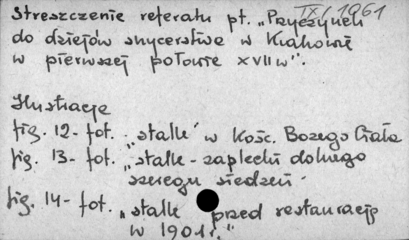 IX/1961
Streszczenie referatu pt. „Przyczynek
do dziejów snycerstwa w Krakowie
w pierwszej połowie XVII w".
Ilustracje
fig. 12 - fot. „stalle" w Kośc. Bożego Ciała
fig. 13 - fot. „stalle - zaplecki dolnego
szeregu siedzeń"
fig. 14 - fot. „stalle przed restauracją
w 1901 r."